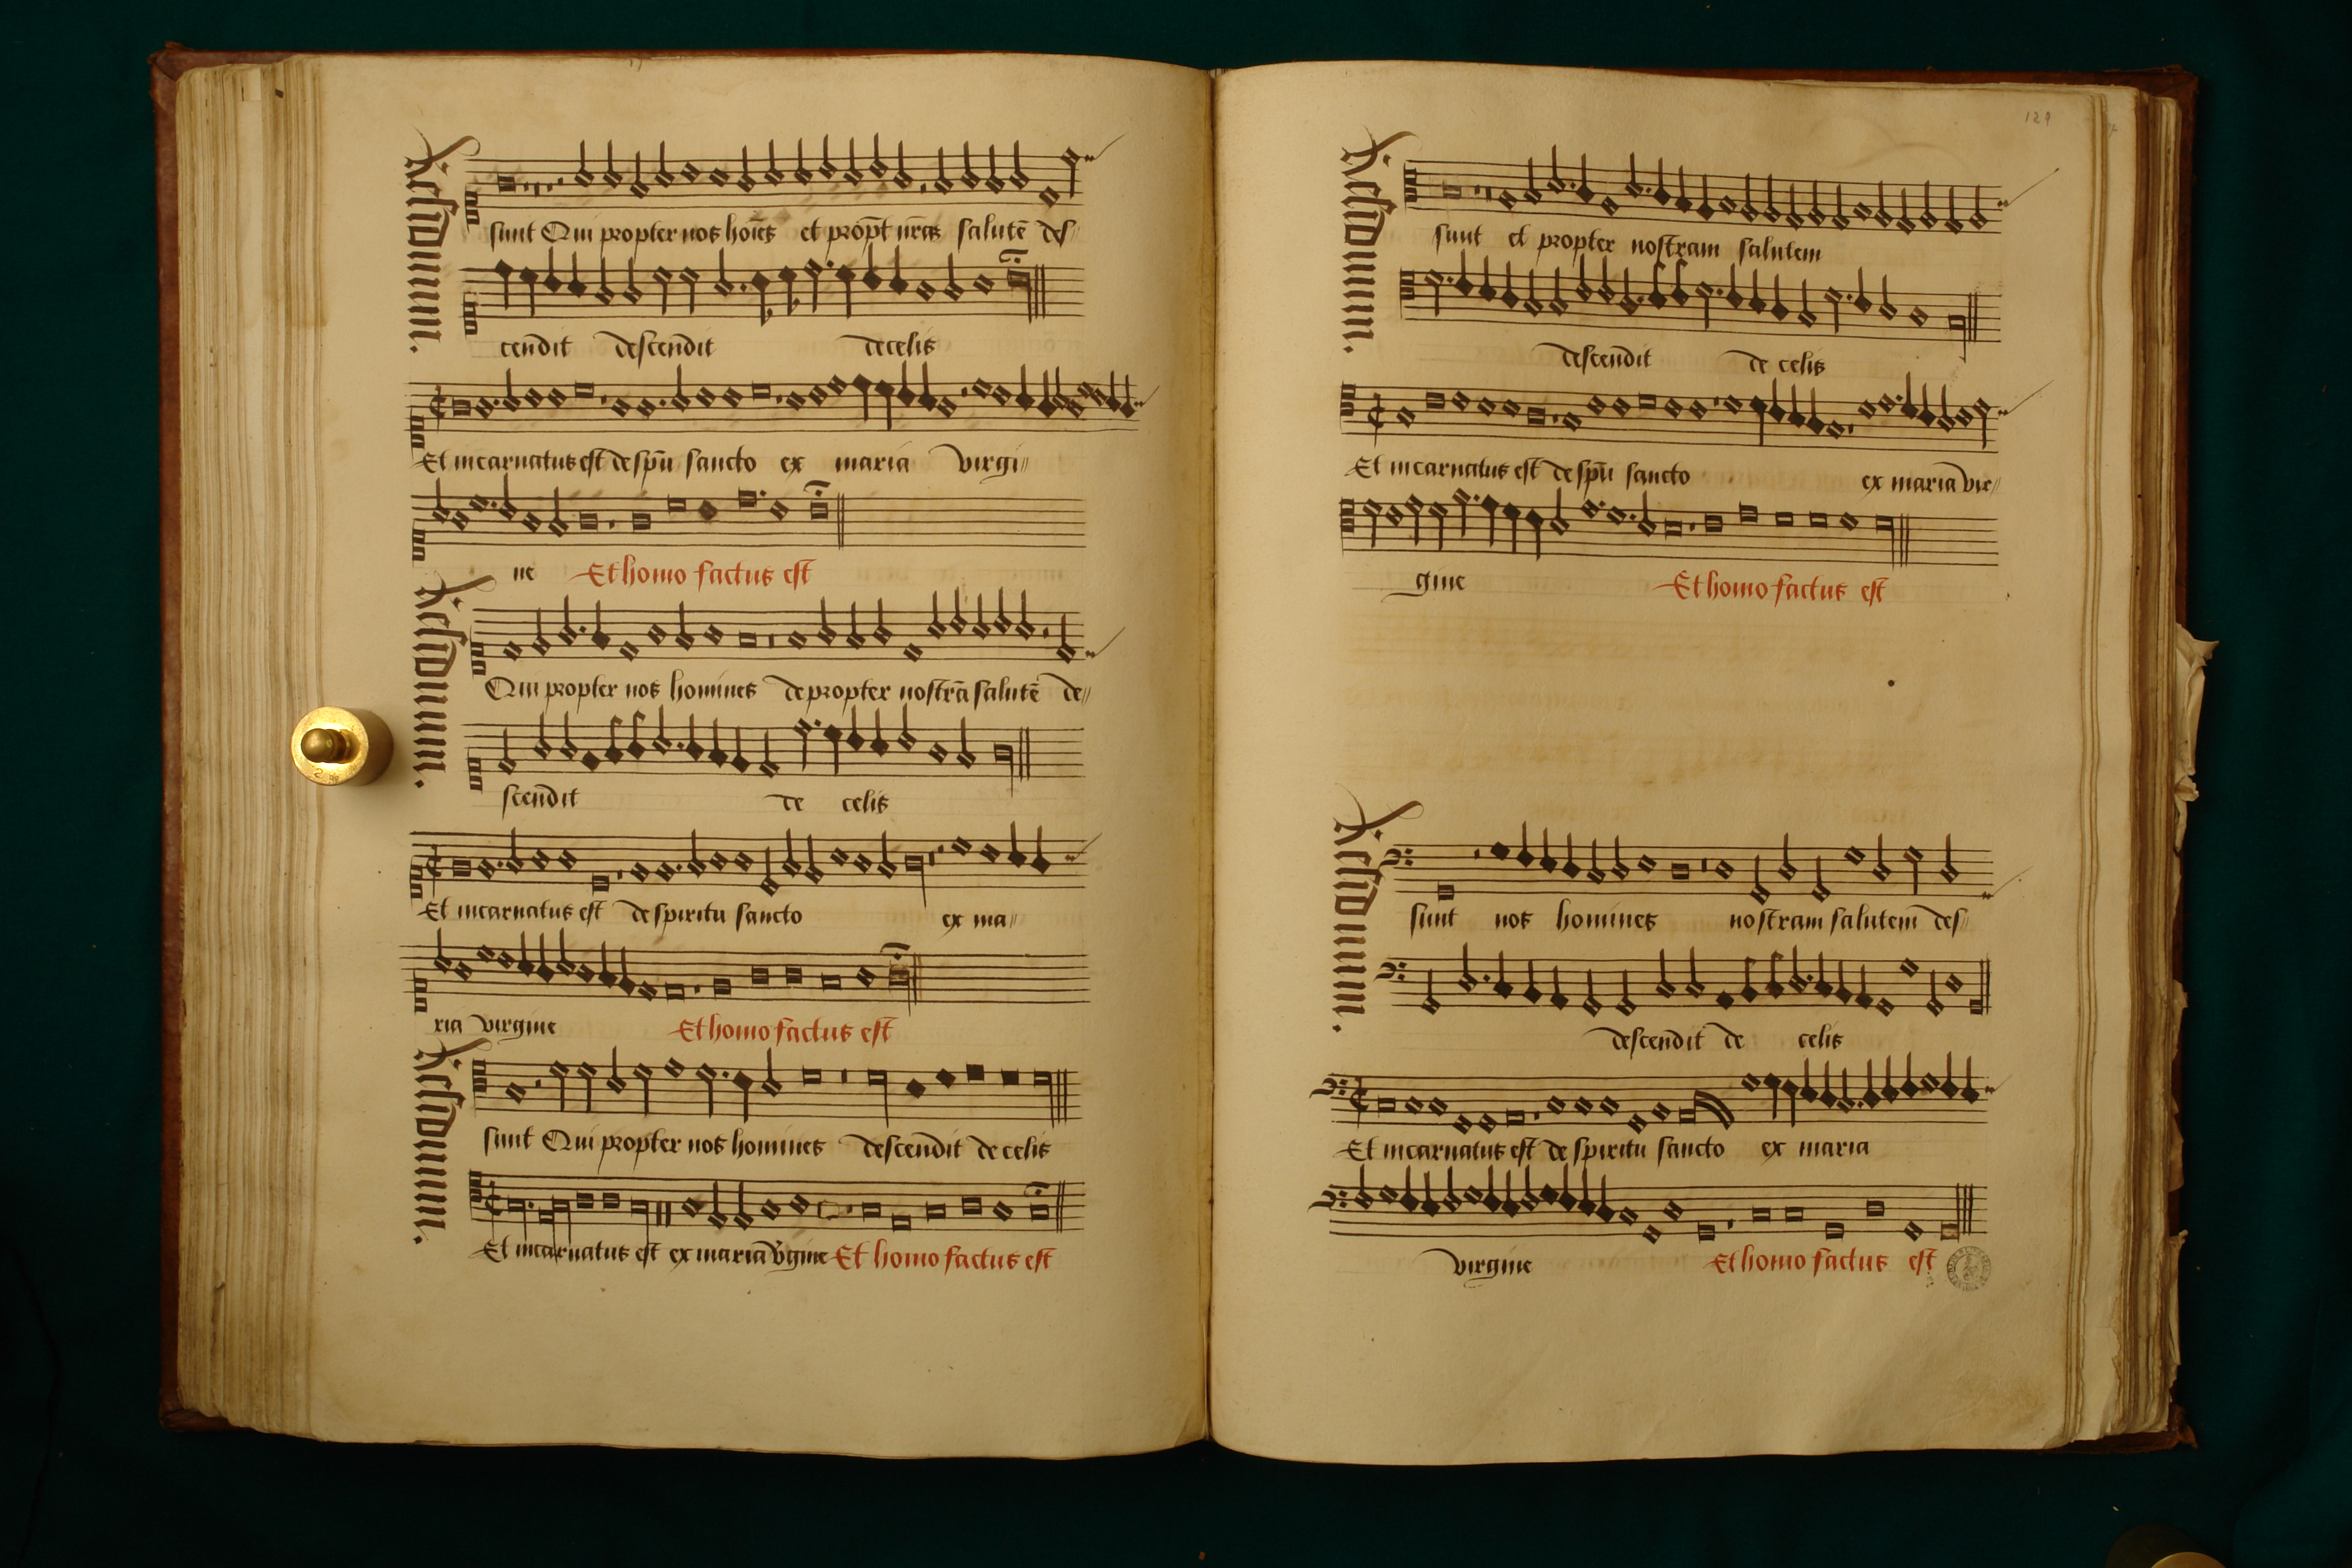 Residuum.
sunt Qui propter nos hoīēs et propt̄ nr̄āz salutē des//
cendit descendit de celis
Et incarnatus est de spū sancto ex maria virgi//
ne Et homo factus est
Residuum.
Qui propter nos homines de propter nostrā salutē de//
scendit de celis
Et incarnatus est de spiritu sancto ex ma//
ria virgine Et homo factus est
Residuum.
sunt Qui propter nos homines descendit de celis
Et incarnatus est ex maria v̄gine Et homo factus est
129
Residuum.
sunt et propter nostram salutem
descendit de celis
Et incarnatus est de spū sancto ex maria vir//
gine Et homo factus est
Residuum.
sunt nos homines nostram salutem des//
descendit de celis
Et incarnatus est de spiritu sancto ex maria
virgine Et homo factus est